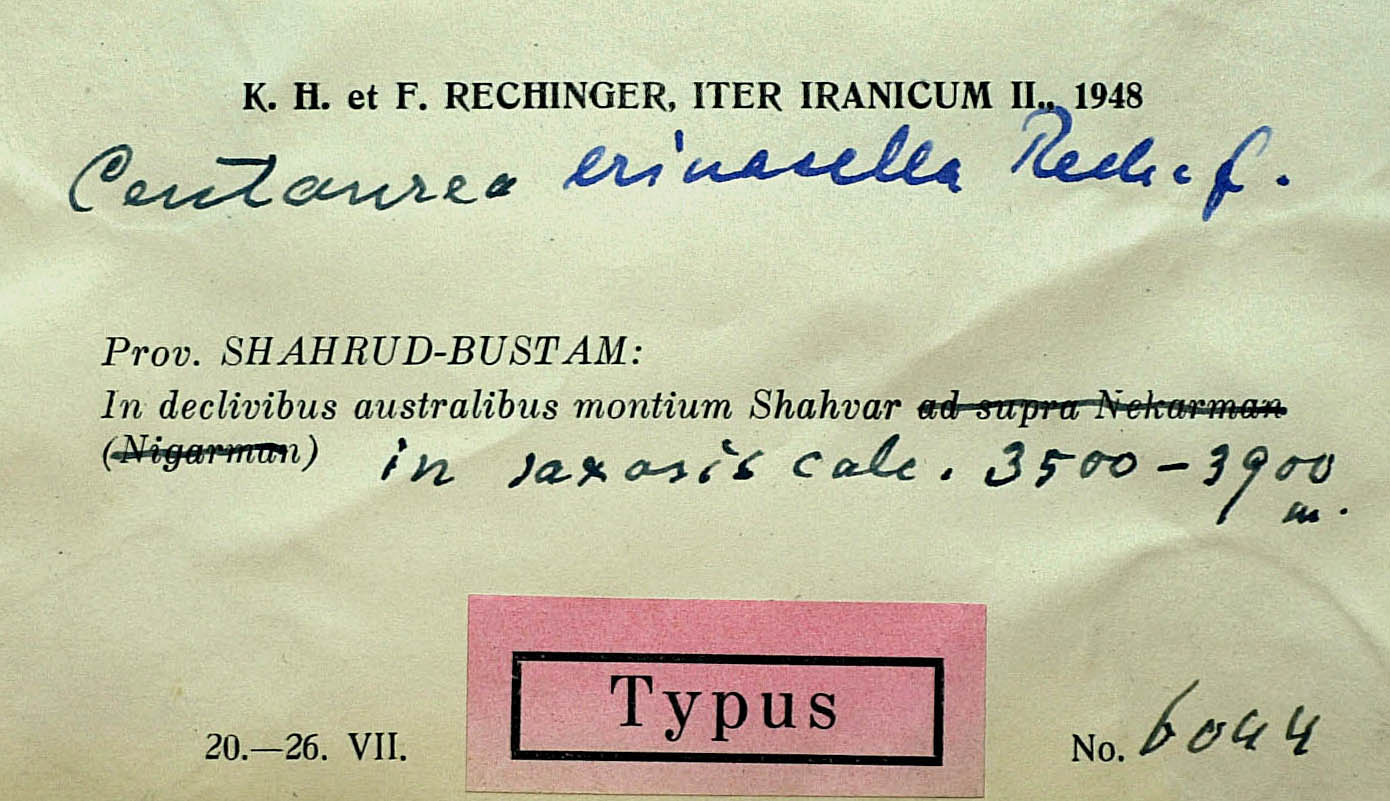 K. H. et F. RECHINGER, ITER IRANICUM II., 1948
Centaurea erinacella Rech. f.
Prov. SHAHRUD-BUSTAM:
In declivibus australibus montium Shahvar ad supra Nekarman
(Nigarman) in saxosis calc. 3500 – 3900
m.
Typus
20.—26. VII.
No. 6044